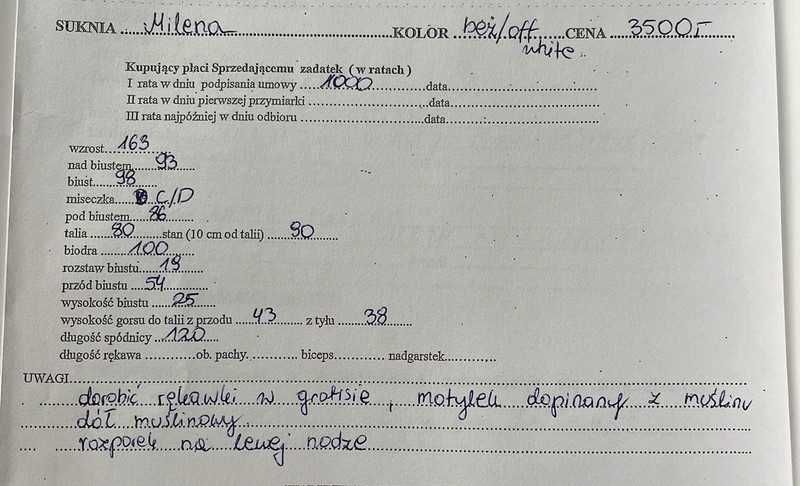 SUKNIA ....Milena....KOLOR ..beż/off.....CENA ...3500,-....
white
Kupujący płaci Sprzedającemu zadatek ( w ratach )
I rata w dniu podpisania umowy .....1000.....data......
II rata w dniu pierwszej przymiarki ..........data......
III rata najpóźniej w dniu odbioru ..........data......
wzrost...163......
nad biustem...93....
biust....98......
miseczka.... C/D
pod biustem...86......
talia .....80.......stan (10 cm od talii) .....90.......
biodra ......100......
rozstaw biustu....19......
przód biustu ...54.......
wysokość biustu ....25.......
wysokość gorsu do talii z przodu ....43........ z tyłu .....38.......
długość spódnicy ...120......
długość rękawa ............ob. pachy............ biceps............ nadgarstek............
UWAGI......
dorobić rękawki w gratisie, motylek dopinany z muślinu
dół muślinowy
rozporek na lewej nodze